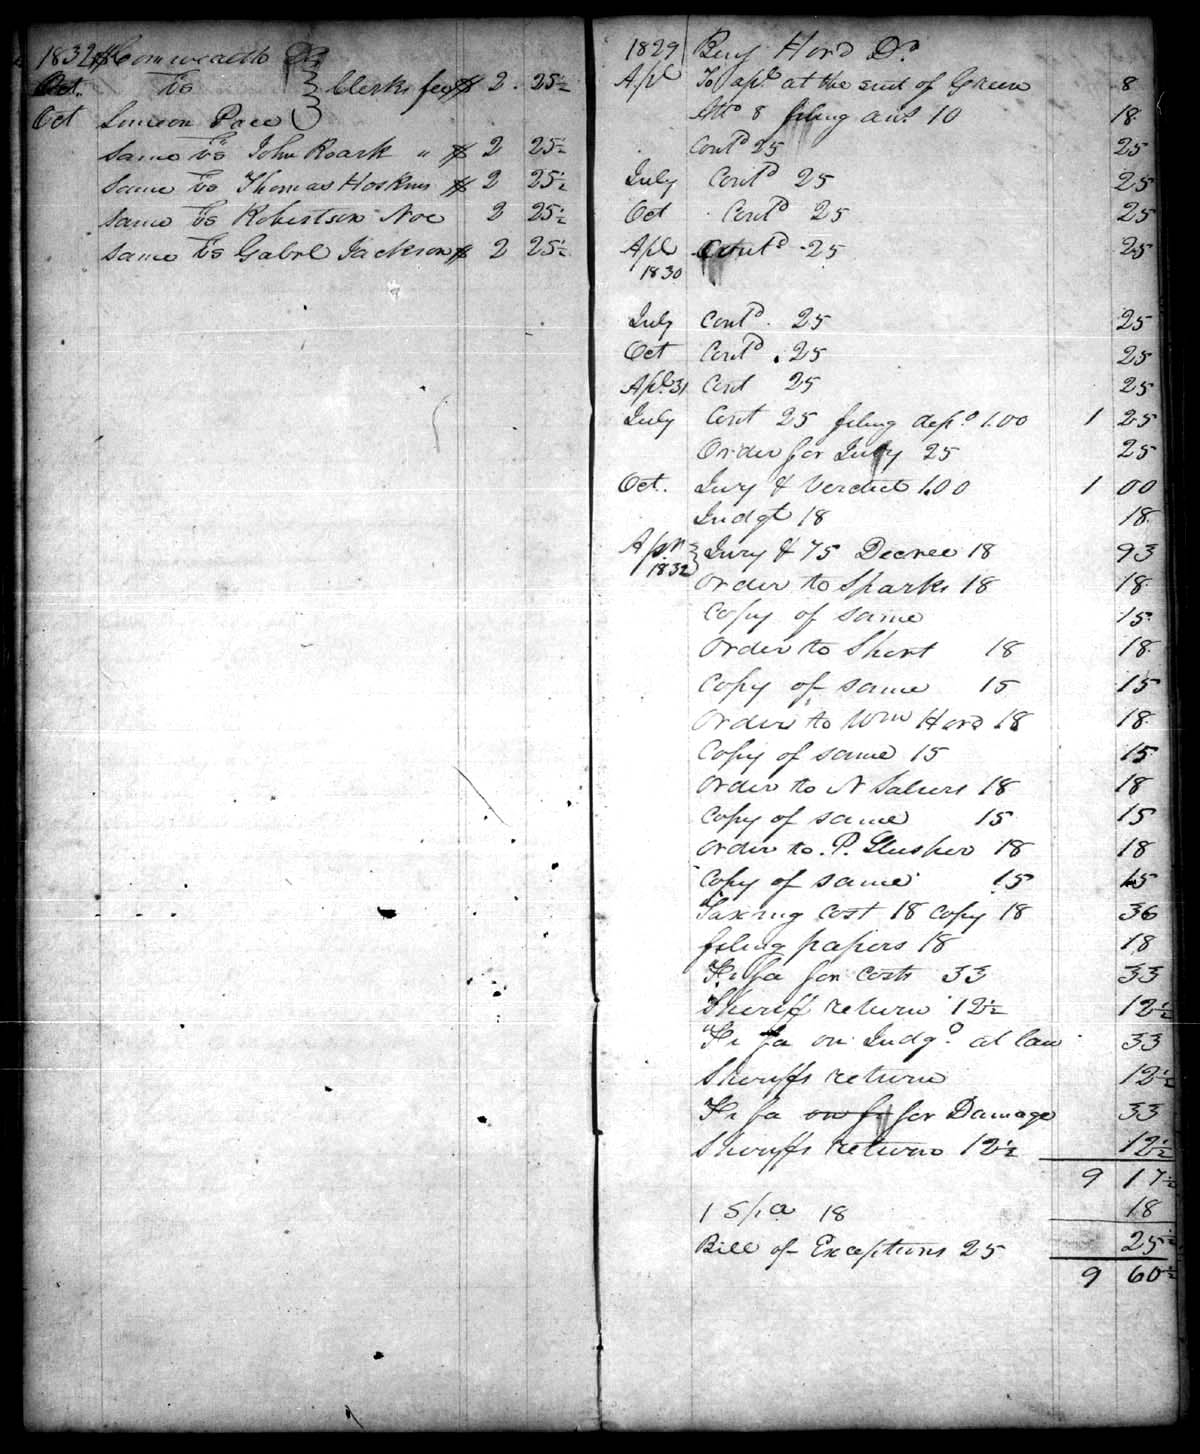 1832 Comwealth Dr
Oct. vs } Clerks fee $ 2. 25½
Oct Simeon Pace
Same vs John Roark " $ 2 25½
Same vs Thomas Hoskins $ 2 25½
Same vs Robertson Noe 2 25½
Same vs Gabrl Jackson $ 2 25½
1829 Benj Hord Dr
Apl To apc at the suit of Green 8
Atto 8 filing ans 10 18
Contd 25 25
July Contd 25 25
Oct Contd 25 25
Apl 1830 Contd 25 25
July Contd. 25 25
Oct Contd. 25 25
Apl 31 Cont 25 25
July Cont 25 filing depo 1.00 1 25
Order for Jury 25 25
Oct. Jury & Verdict 1.00 1 00
Judgt 18 18
Apr 1832 } Jury & 75 Decree 18 93
Order to Sparks 18 18
Copy of same 15
Order to Short 18 18
Copy of same 15 15
Order to Wm Hord 18 18
Copy of same 15 15
Order to N Salvers 18 18
Copy of same 15 15
Order to. P. Slusher 18 18
Copy of same 15 15
Taxing cost 18 copy 18 36
filing papers 18 18
Fi fa for costs 33 33
Sheriff return 12½ 12½
Fi fa on Judgt at law 33
Sheriffs return 12½
Fi fa on fi for Damage 33
Sheriffs return 12½ 12½
9 17½
1 Spa 18 18
Bill of Exceptions 25 25½
9 60½